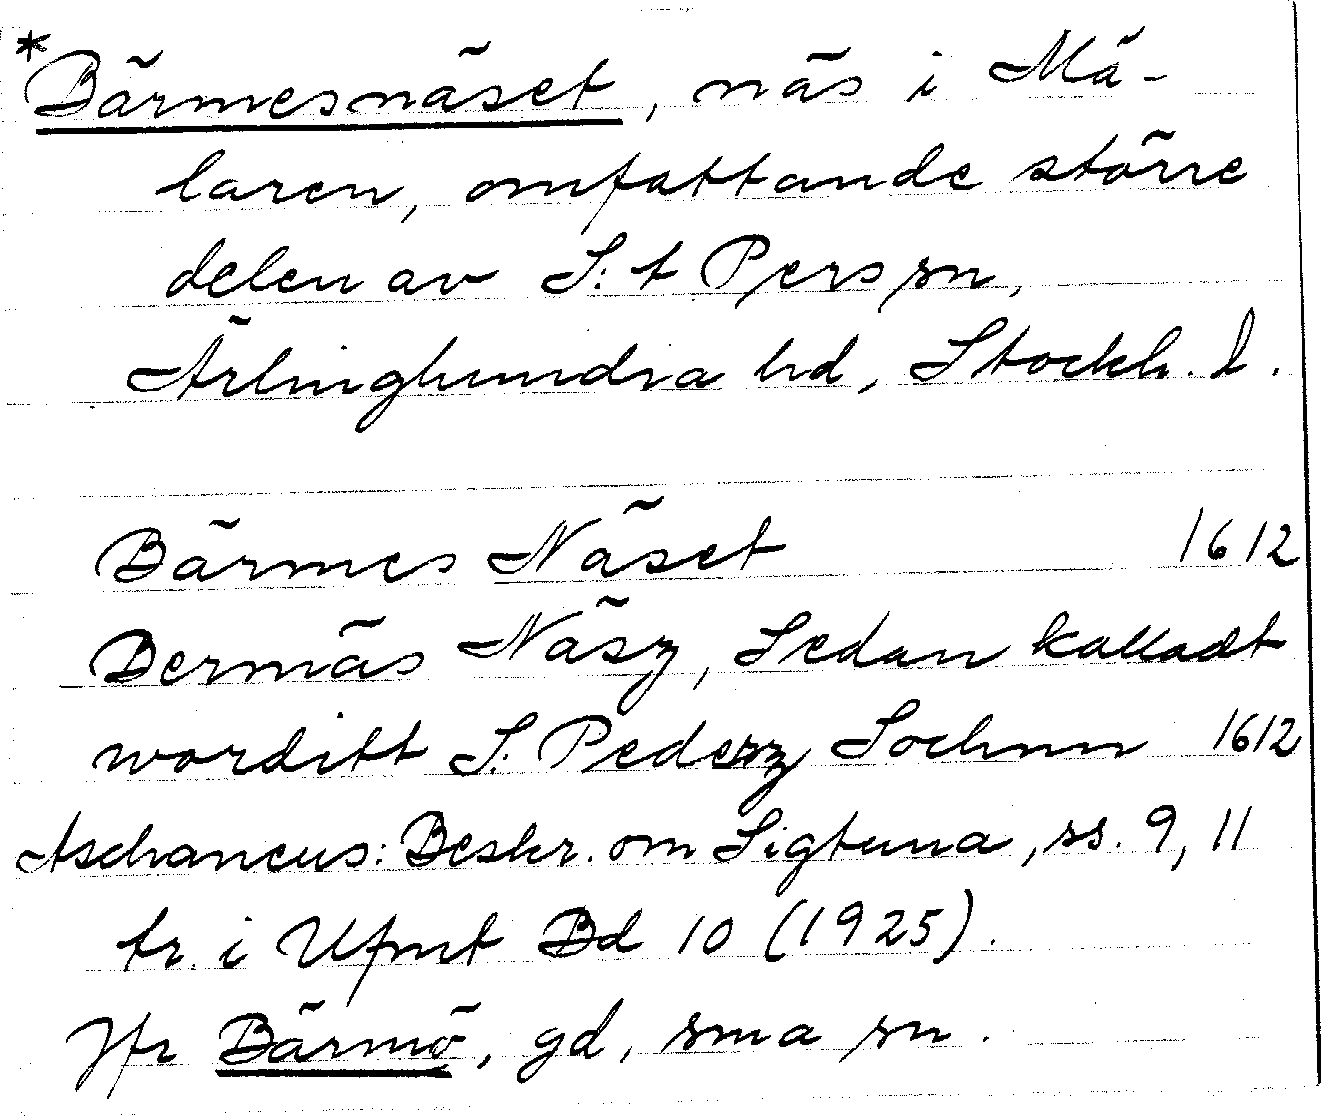 *Bärmesnäset, näs i Mä-
laren, omfattande större
delen av S:t Pers sn,
Ärlinghundra hd, Stockh. l.
Bärmes Näset 1612
Bermäs Näsz, Sedan kalladt
worditt S. Pedersz Sochnn 1612
Aschaneus: Beskr. om Sigtuna, ss. 9, 11
tr. i Ufmt Bd 10 (1925).
Jfr Bärmö, gd, sma sn.